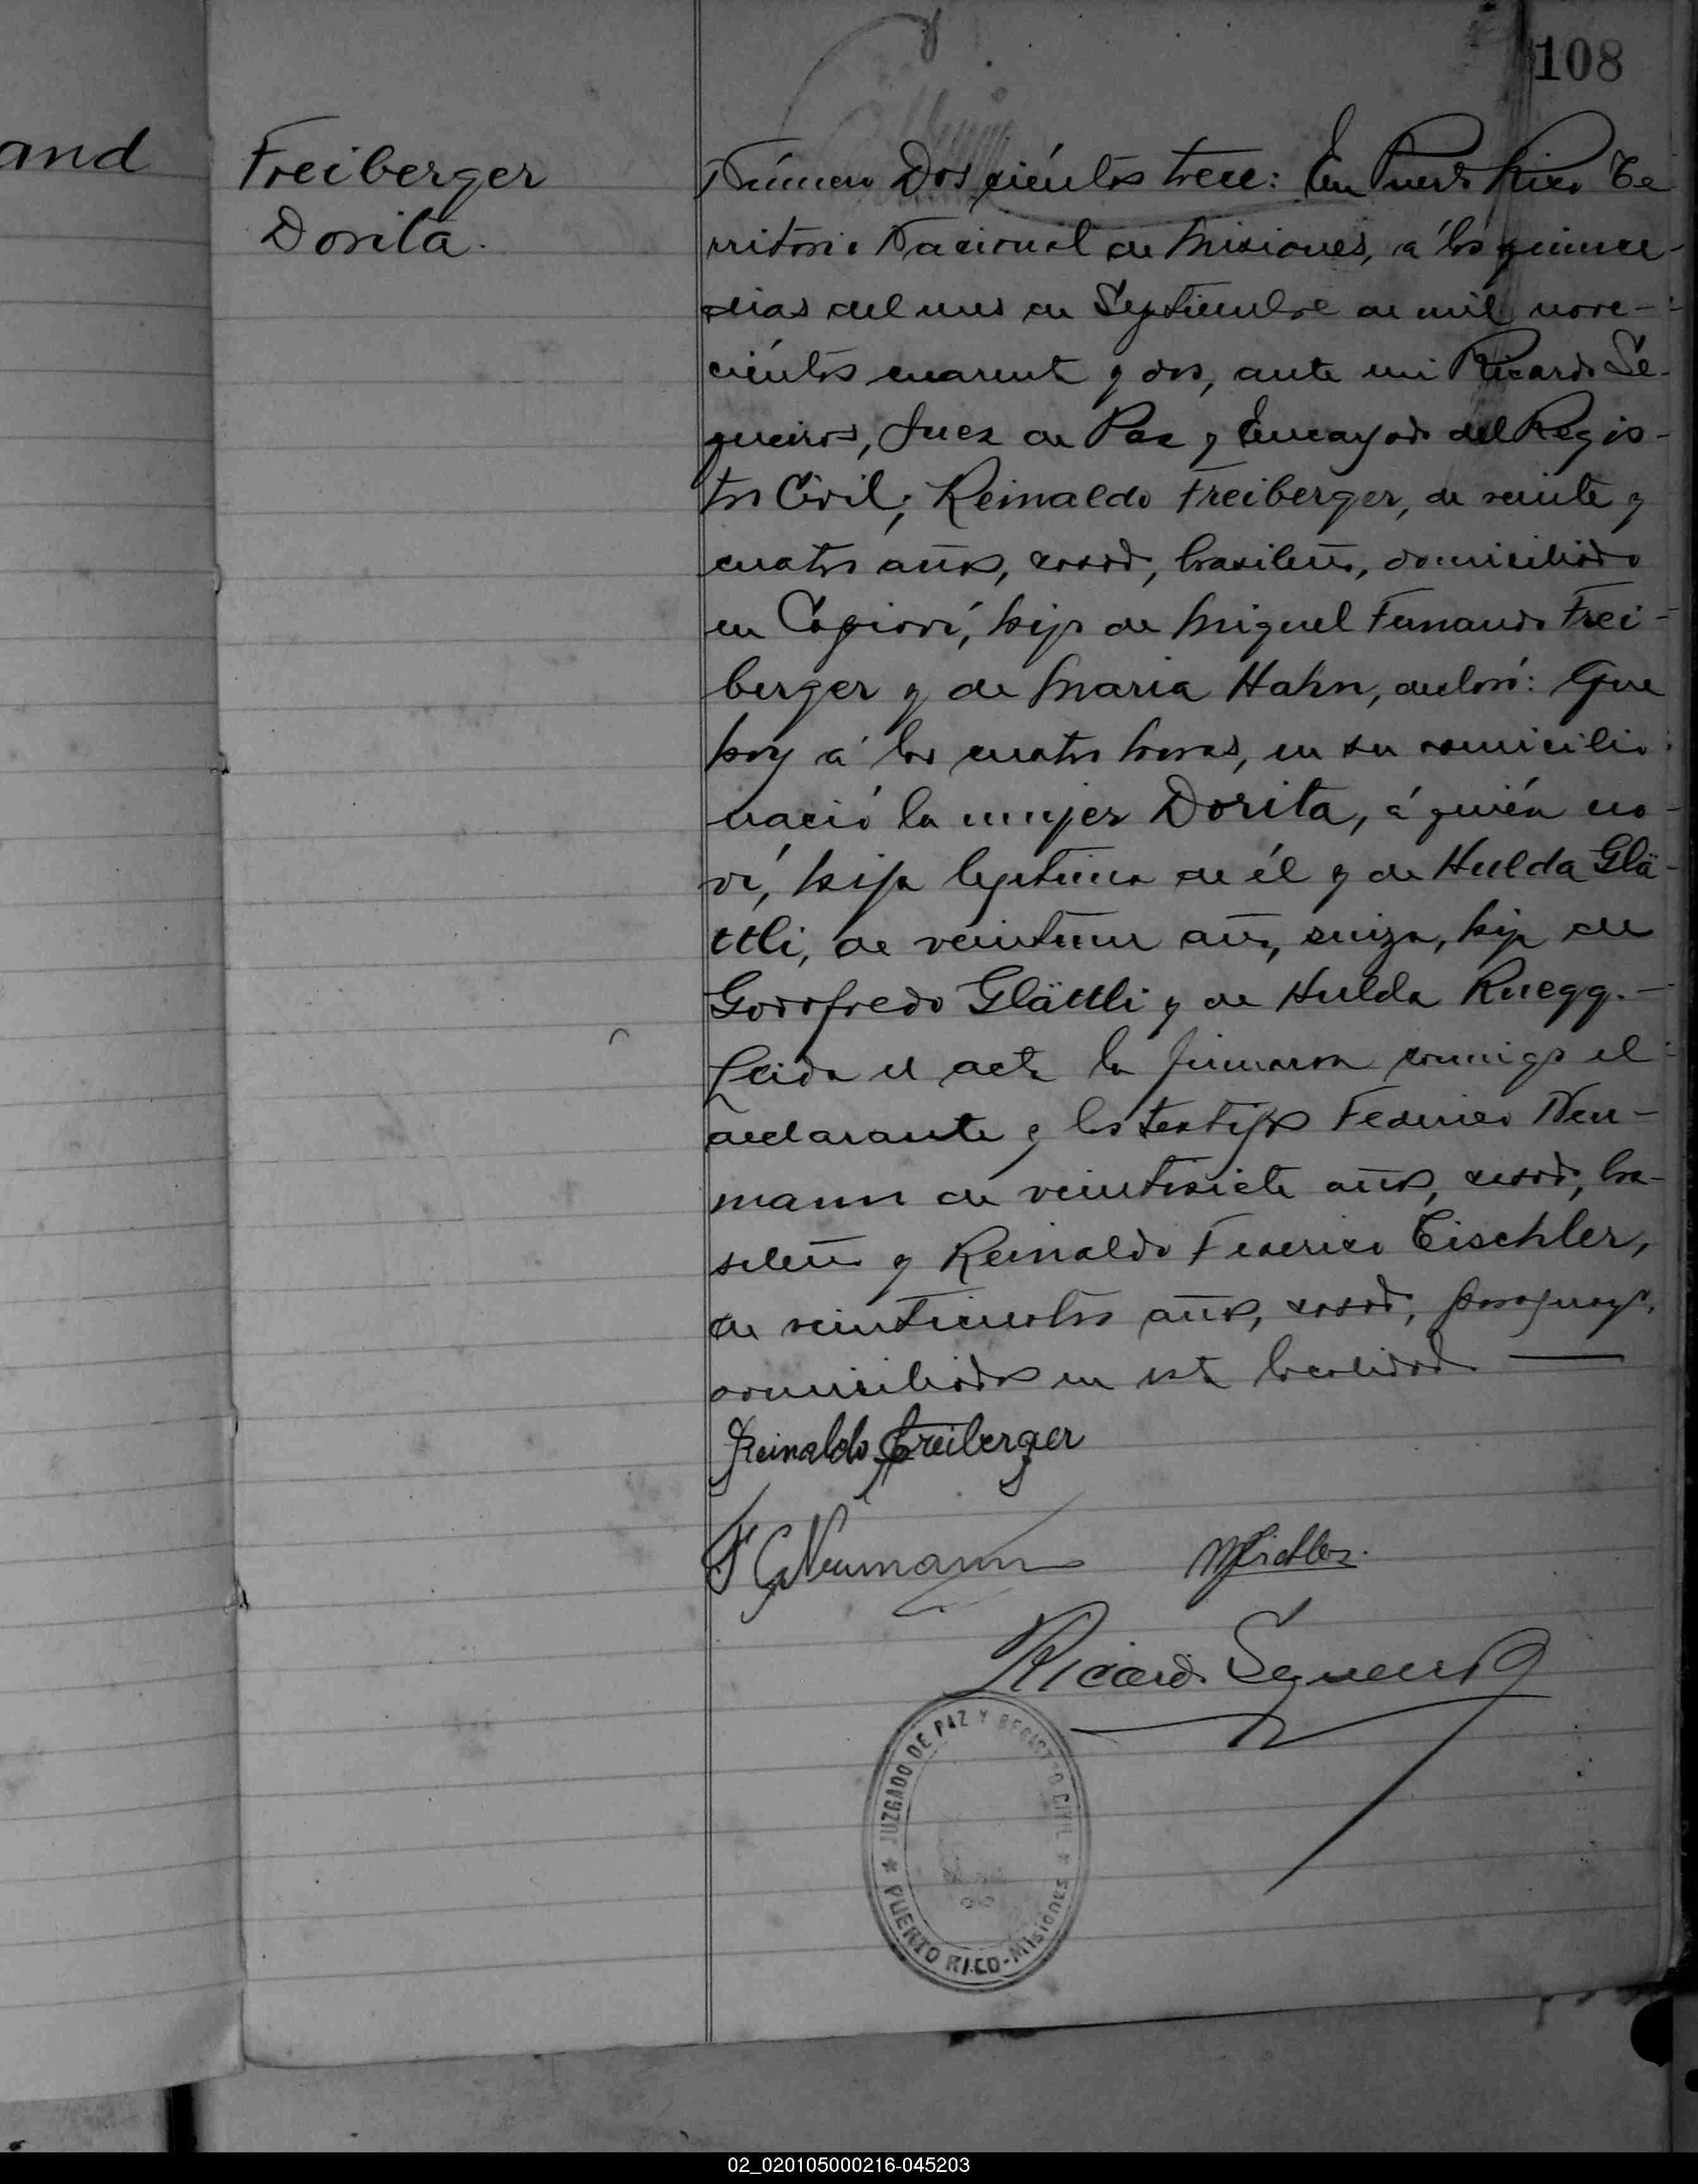 108
and
Freiberger
Dorita.
Número Doscientos trece: En Puerto Rico Te
rritorio Nacional de Misiones, á los quince
dias del mes de Septiembre de mil nove-
cientos cuarenta y dos, ante mi Ricardo Se-
queiros, Juez de Paz y Encargado del Regis-
tro Civil; Reinaldo Freiberger, de veinte y
cuatro años, casado, brasileño, domiciliado
en Capioví, hijo de Miguel Fernando Frei-
berger y de Maria Hahn, declaró: Que
hoy á las cuatro horas, en su domicilio
nació la mujer Dorita, á quién no
ví, hija legitima de él y de Hulda Glä-
ttli, de veintiun años, suiza, hija de
Godofredo Glättli y de Hulda Ruegg.—
Leida el acta la firmaron conmigo el
declarante y los testigos Federico Neu-
mann de veintisiete años, casado, bra-
sileño y Reinaldo Federico Tischler,
de veinticuatro años, casado, paraguayo,
domiciliados en esta localidad. —
Reinaldo Freiberger
F G Neumann
Ricardo Sequeiros
JUZGADO DE PAZ Y REGISTRO CIVIL
PUERTO RICO-Misiones
02_020105000216-045203